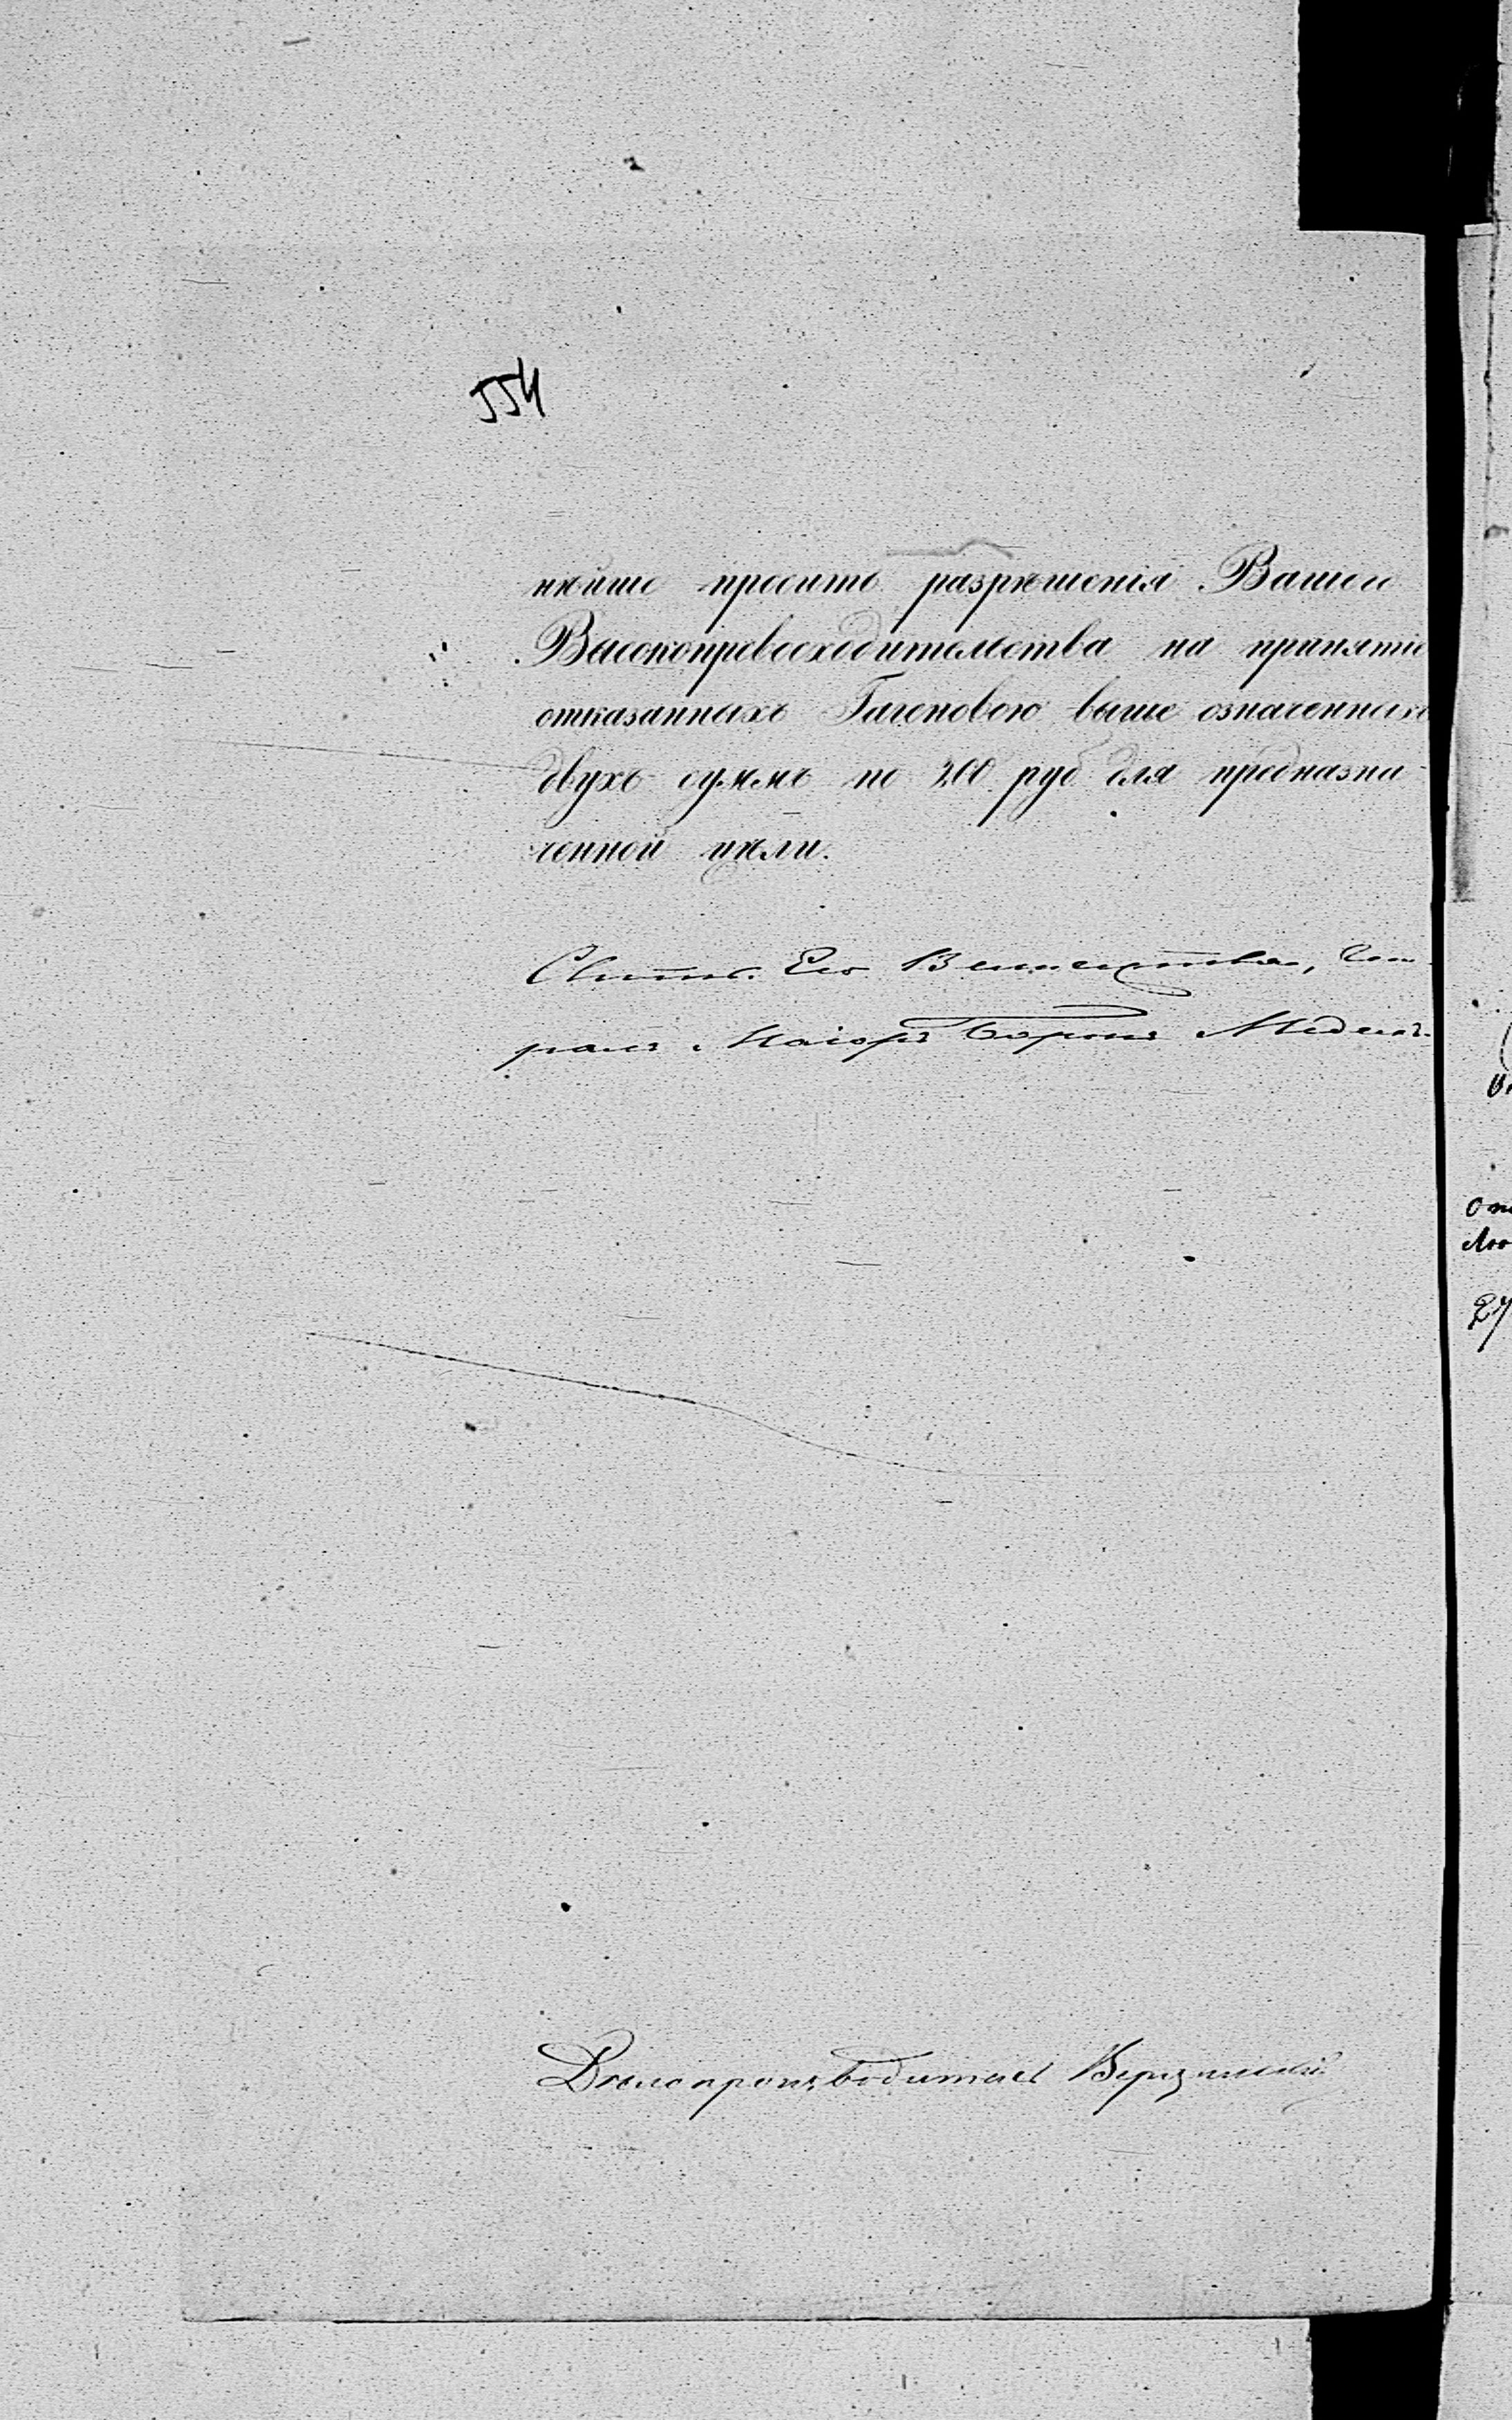 554
нѣйше просить разрѣшенія Вашего
Высокопревосходительства на принятіе
отказанныхъ Гагоновою выше означенныхъ
двухъ суммъ по 200 руб для предназна
ченной цѣли.
Свиты Его Величества, Гене
ралъ Маіоръ Баронъ Меделъ
Дѣлопроизводитель
От
27